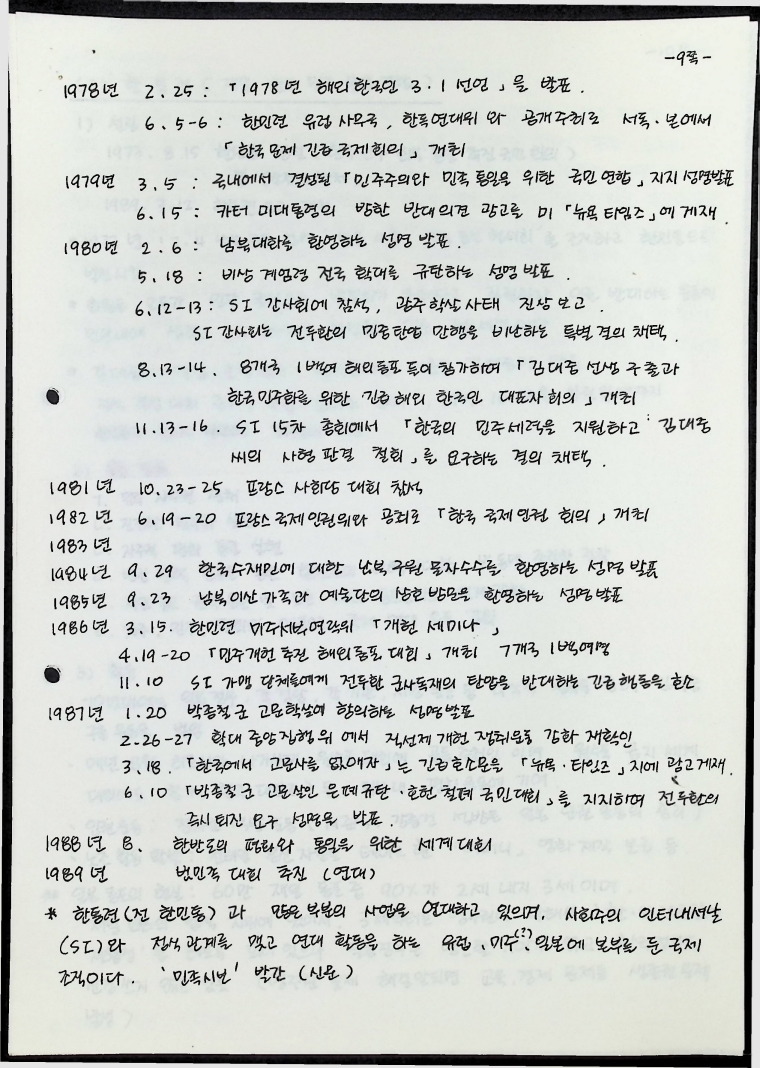 -9쪽-
1978년 2.25 : 「1978년 해외한국인 3·1선언」을 발표.
6.5-6 : 한민련 유럽 사무국, 한독연대위 와 공개주최로 서독·본에서
「한국문제 긴급국제회의」 개최
1979년 3.5 : 국내에서 결성된 「민주주의와 민족통일을 위한 국민연합」지지성명발표
6.15 : 카터 미대통령의 방한 반대의견 광고를 미 「뉴욕타임즈」에 게재.
1980년 2.6 : 남북대화를 환영하는 성명 발표.
5.18 : 비상계엄령 전국 확대를 규탄하는 성명 발표.
6.12-13 : SI 간사회에 참석, 광주학살사태 진상보고.
SI간사회는 전두환의 민중탄압 만행을 비난하는 특별결의 채택.
8.13-14. 8개국 1백여 해외동포들이 참가하여 「김대중 선생 구출과
한국민주화를 위한 긴급해외 한국인 대표자회의」 개최
11.13-16. SI 15차 총회에서 「한국의 민주세력을 지원하고 김대중
씨의 사형판결 철회」를 요구하는 결의 채택.
1981년 10.23-25 프랑스 사회당 대회 참석
1982년 6.19-20 프랑스국제인권위와 공최로 「한국 국제인권 회의」 개최
1983년
1984년 9.29 한국수재민에 대한 남북구원 물자수수를 환영하는 성명 발표
1985년 9.23 남북이산가족과 예술단의 상호방문을 환영하는 성명발표
1986년 3.15. 한민련 미주서부연락위 「개헌 세미나」
4.19-20 「민주개헌 추진 해외동포 대회」 개최 7개국 1백여명
11.10 SI 가맹 단체들에게 전두환 군사독재의 탄압을 반대하는 긴급행동을 호소
1987년 1.20 박종철군 고문학살에 항의하는 성명발표
2-26-27 확대중앙집행위에서 직선제개헌 쟁취운동 강화 재확인
3.18. 「한국에서 고문사를 없애자」는 긴급호소문을 「뉴욕·타임즈」지에 광고게재.
6.10 「박종철군 고문살인 은폐규탄·호헌철폐 국민대회」를 지지하며 전두환의
즉시퇴진 요구 성명을 발표.
1988년 8. 한반도의 평화와 통일을 위한 세계대회
1989년 범민족 대회 추진 (연대)
* 한통련(전 한민통)과 많은부분의 사업을 연대하고 있으며, 사회주의 인터내셔날
(SI)와 정식관계를 맺고 연대 활동을 하는 유럽, 미주(?), 일본에 본부를 둔 국제
조직이다. '민족시보' 발간 (신문)